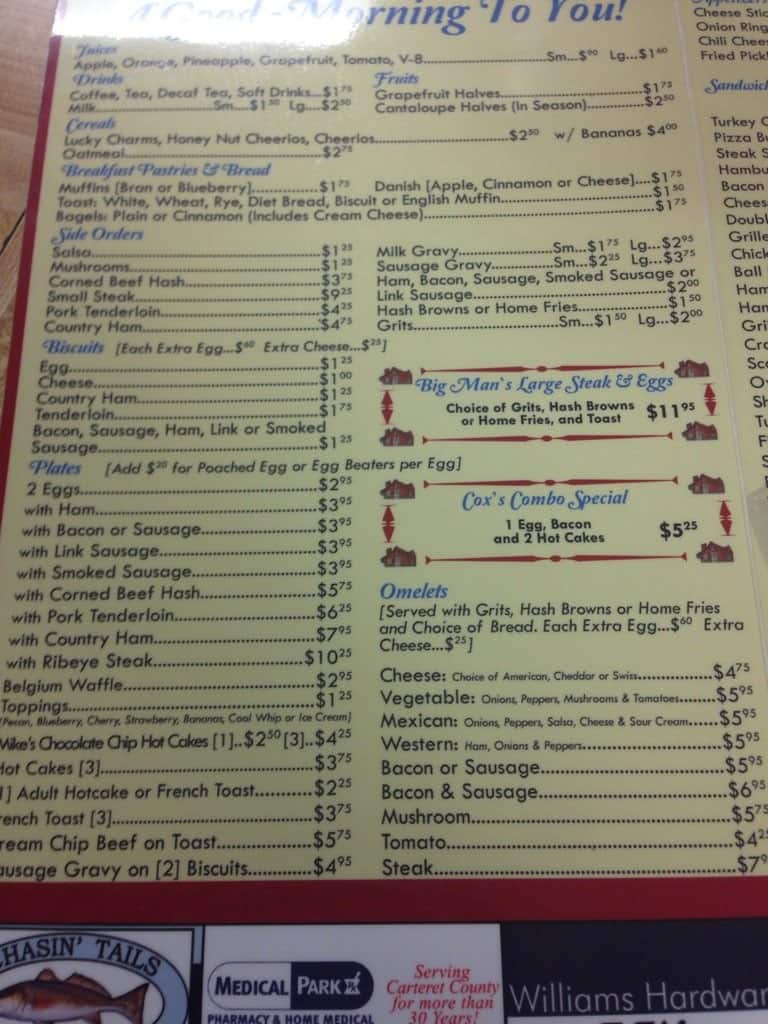 A Good Morning To You!
Juices
Apple, Orange, Pineapple, Grapefruit, Tomato, V-8...Sm...$⁹⁰ Lg...$1⁶⁰
Drinks
Coffee, Tea, Decaf Tea, Soft Drinks...$1⁷⁵
Milk...Sm...$1⁵⁰ Lg...$2⁵⁰
Fruits
Grapefruit Halves...$1⁷⁵
Cantaloupe Halves (In Season)...$2⁵⁰
Cereals
Lucky Charms, Honey Nut Cheerios, Cheerios...$2⁵⁰ w/ Bananas $4⁰⁰
Oatmeal...$2⁷⁵
Breakfast Pastries & Bread
Muffins [Bran or Blueberry]...$1⁷⁵ Danish [Apple, Cinnamon or Cheese]...$1⁷⁵
Toast: White, Wheat, Rye, Diet Bread, Biscuit or English Muffin...$1⁵⁰
Bagels: Plain or Cinnamon (Includes Cream Cheese)...$1⁷⁵
Side Orders
Salsa...$1²⁵
Mushrooms...$1²⁵
Corned Beef Hash...$3⁷⁵
Small Steak...$9²⁵
Pork Tenderloin...$4²⁵
Country Ham...$4⁷⁵
Milk Gravy...Sm...$1⁷⁵ Lg...$2⁹⁵
Sausage Gravy...Sm...$2²⁵ Lg...$3⁷⁵
Ham, Bacon, Sausage, Smoked Sausage or
Link Sausage...$2⁰⁰
Hash Browns or Home Fries...$1⁵⁰
Grits...Sm...$1⁵⁰ Lg...$2⁰⁰
Biscuits [Each Extra Egg...$⁶⁰ Extra Cheese...$²⁵]
Egg...$1²⁵
Cheese...$1⁰⁰
Country Ham...$1²⁵
Tenderloin...$1⁷⁵
Bacon, Sausage, Ham, Link or Smoked
Sausage...$1²⁵
Plates [Add $²⁰ for Poached Egg or Egg Beaters per Egg]
2 Eggs...$2⁹⁵
with Ham...$3⁹⁵
with Bacon or Sausage...$3⁹⁵
with Link Sausage...$3⁹⁵
with Smoked Sausage...$3⁹⁵
with Corned Beef Hash...$5⁷⁵
with Pork Tenderloin...$6²⁵
with Country Ham...$7⁹⁵
with Ribeye Steak...$10²⁵
Belgium Waffle...$2⁹⁵
Toppings...$1²⁵
[Pecan, Blueberry, Cherry, Strawberry, Bananas, Cool Whip or Ice Cream]
Mike's Chocolate Chip Hot Cakes [1]..$2⁵⁰ [3]..$4²⁵
Hot Cakes [3]...$3⁷⁵
1] Adult Hotcake or French Toast...$2²⁵
rench Toast [3]...$3⁷⁵
ream Chip Beef on Toast...$5⁷⁵
ausage Gravy on [2] Biscuits...$4⁹⁵
Big Man's Large Steak & Eggs
Choice of Grits, Hash Browns
or Home Fries, and Toast
$11⁹⁵
Cox's Combo Special
1 Egg, Bacon
and 2 Hot Cakes
$5²⁵
Omelets
[Served with Grits, Hash Browns or Home Fries
and Choice of Bread. Each Extra Egg...$⁶⁰ Extra
Cheese...$²⁵]
Cheese: Choice of American, Cheddar or Swiss...$4⁷⁵
Vegetable: Onions, Peppers, Mushrooms & Tomatoes...$5⁹⁵
Mexican: Onions, Peppers, Salsa, Cheese & Sour Cream...$5⁹⁵
Western: Ham, Onions & Peppers...$5⁹⁵
Bacon or Sausage...$5⁹⁵
Bacon & Sausage...$6⁹⁵
Mushroom...$5⁷⁵
Tomato...$4²
Steak...$7⁹
Cheese Stic
Onion Ring
Chili Chee
Fried Pick
Sandwich
Turkey C
Pizza Bu
Steak S
Hambu
Bacon
Chees
Doubl
Grille
Chick
Ball
Ham
Han
Gri
Cro
Sc
O
Sh
Tu
F
HASIN' TAILS
MEDICAL PARK
PHARMACY & HOME MEDICAL
Serving
Carteret County
for more than
30 Years!
Williams Hardwar